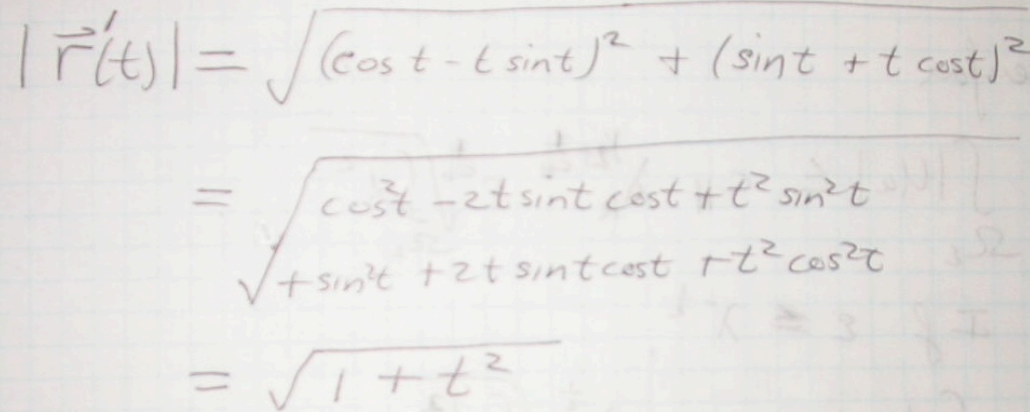 |r⃗'(t)| = √((cos t - t sin t)² + (sin t + t cos t)²)
= √(cos²t - 2t sin t cos t + t² sin²t
+ sin²t + 2t sin t cos t + t² cos²t
= √(1 + t²)